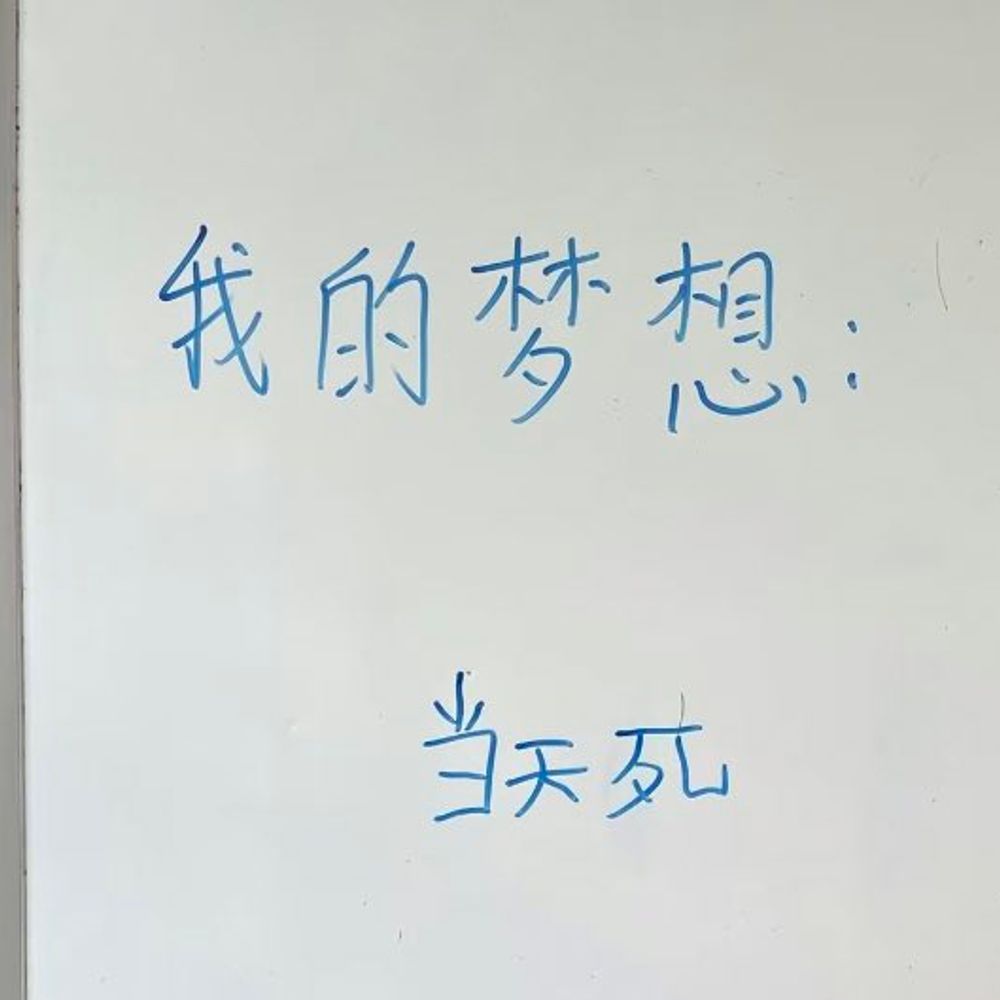 我的梦想:
当天死